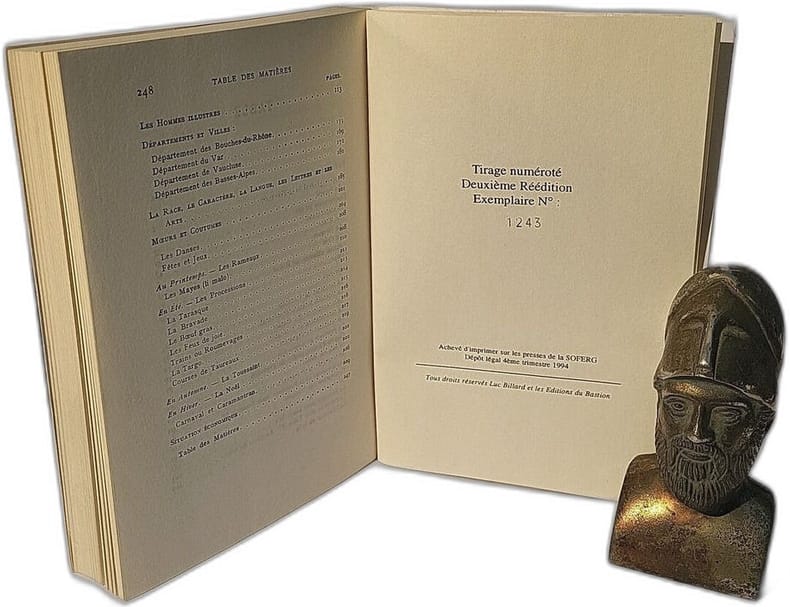 248 TABLE DES MATIÈRES
PAGES.
LES HOMMES ILLUSTRES 113
DÉPARTEMENTS ET VILLES :
Département des Bouches-du-Rhône
Département du Var
Département de Vaucluse
Département des Basses-Alpes
LA RACE, LE CARACTÈRE, LA LANGUE, LES LETTRES ET LES
ARTS
MŒURS ET COUTUMES
Les Danses
Fêtes et Jeux
Au Printemps. — Les Rameaux
Les Mayes (li maïo)
En Été. — Les Processions
La Tarasque
La Bravade
Le Bœuf gras
Les Feux de joie
Trains ou Roumevages
La Targo
Courses de Taureaux
En Automne. — La Toussaint
En Hiver. — La Noël
Carnaval et Caramantran
SITUATION ÉCONOMIQUE
Table des Matières 247
Tirage numéroté
Deuxième Réédition
Exemplaire N° :
1243
Achevé d'imprimer sur les presses de la SOFERG
Dépôt légal 4ème trimestre 1994
Tous droits réservés Luc Billard et les Editions du Bastion